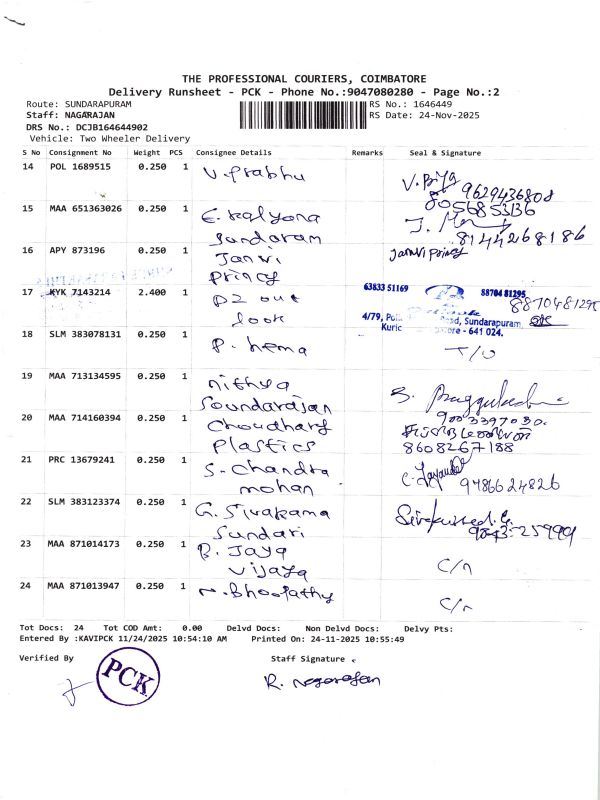 THE PROFESSIONAL COURIERS, COIMBATORE
Delivery Runsheet - PCK - Phone No.:9047080280 - Page No.:2
Route: SUNDARAPURAM RS No.: 1646449
Staff: NAGARAJAN RS Date: 24-Nov-2025
DRS No.: DCJB164644902
Vehicle: Two Wheeler Delivery
S No Consignment No Weight PCS Consignee Details Remarks Seal & Signature
14 POL 1689515 0.250 1 V. Prabhu
V. Priya 9629436808
15 MAA 651363026 0.250 1 E. Kalyona
8056853136
Sundaram
8144268186
16 APY 873196 0.250 1 Janvi
Janvi Princy
Princy
17 KYK 7143214 2.400 1 D2 out
63833 51169 88704 81295
8870481295
look
4/79, Sundarapuram,
Kuric ore - 641 024.
18 SLM 383078131 0.250 1 P. hema
T/O
19 MAA 713134595 0.250 1 nithya
Soundarajan
9003397030
20 MAA 714160394 0.250 1 Choudhary
Plastics
8608267188
21 PRC 13679241 0.250 1 S. Chandra
mohan
9486624826
22 SLM 383123374 0.250 1 G. Sivakama
Sundari
9843-25999
23 MAA 871014173 0.250 1 B. Jaya
Vijaya
C/n
24 MAA 871013947 0.250 1 n. Bhoopathy
C/n
Tot Docs: 24 Tot COD Amt: 0.00 Delvd Docs: Non Delvd Docs: Delvy Pts:
Entered By :KAVIPCK 11/24/2025 10:54:10 AM Printed On: 24-11-2025 10:55:49
Verified By Staff Signature
PCK
R. Nagarajan